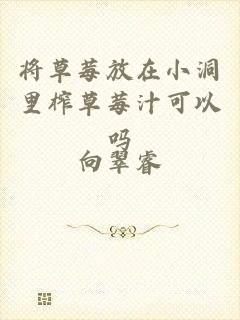 将草莓放在小洞
里榨草莓汁可以
吗
向翠睿